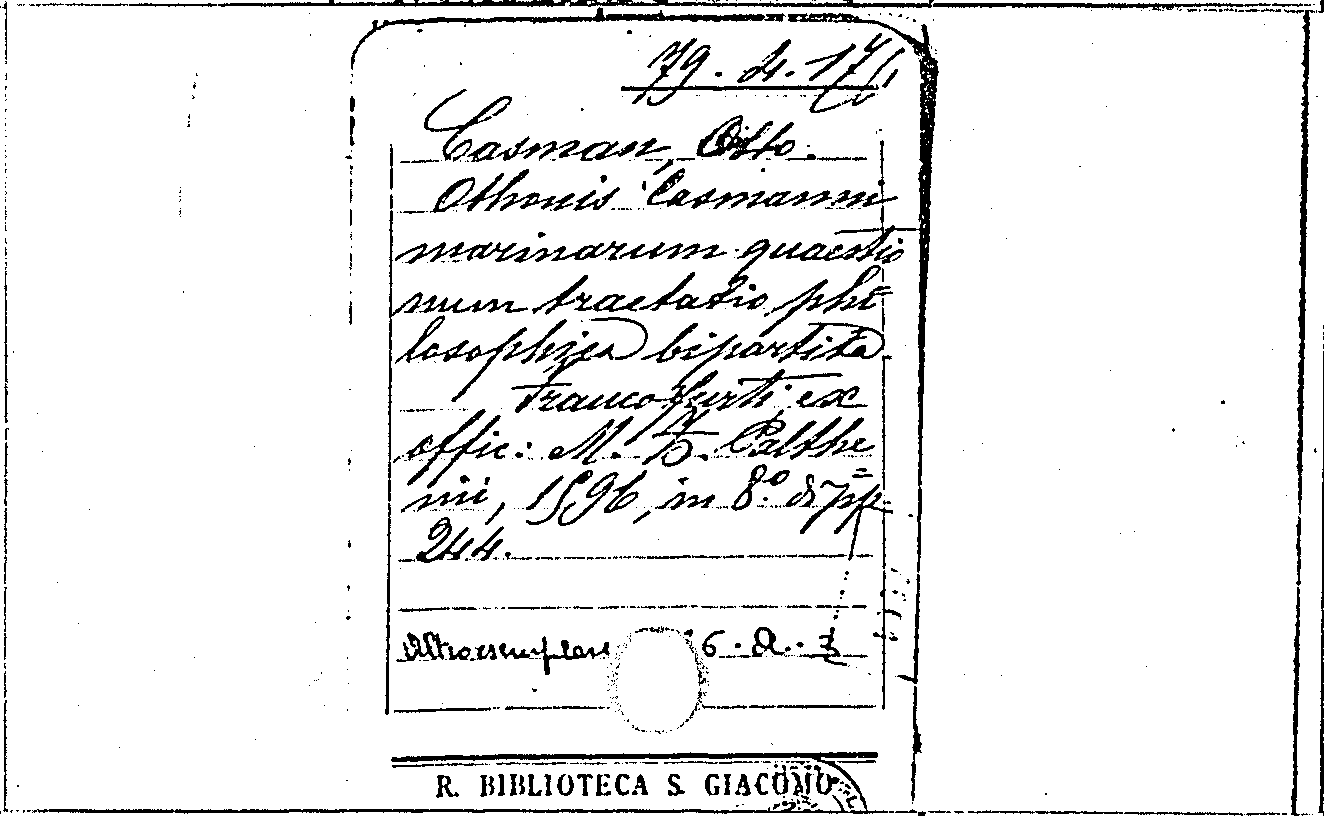 79. D. 17
Casman, Otto.
Othonis Casmanni
marinarum quaestio
num tractatio phi=
losophica bipartita.
Francofurti, ex
offic: M. Z. Palthe=
nii, 1596, in 8.° di pp.
244.
Altro esemplare 6. D. 3
R. BIBLIOTECA S. GIACOMO